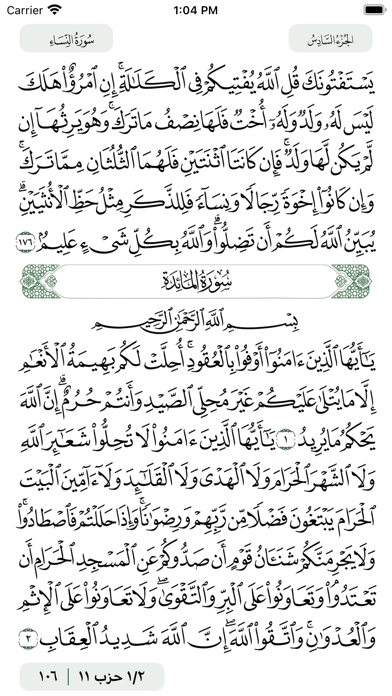 Carrier 1:04 PM
سُورَةُ النِّسَاءِ الجُزْءُ السَّادِسُ
يَسْتَفْتُونَكَ قُلِ ٱللَّهُ يُفْتِيكُمْ فِى ٱلْكَلَـٰلَةِ ۚ إِنِ ٱمْرُؤٌا۟ هَلَكَ
لَيْسَ لَهُۥ وَلَدٌ وَلَهُۥٓ أُخْتٌ فَلَهَا نِصْفُ مَا تَرَكَ ۚ وَهُوَ يَرِثُهَآ إِن
لَّمْ يَكُن لَّهَا وَلَدٌ ۚ فَإِن كَانَتَا ٱثْنَتَيْنِ فَلَهُمَا ٱلثُّلُثَانِ مِمَّا تَرَكَ ۚ
وَإِن كَانُوٓا۟ إِخْوَةً رِّجَالًا وَنِسَآءً فَلِلذَّكَرِ مِثْلُ حَظِّ ٱلْأُنثَيَيْنِ ۗ
يُبَيِّنُ ٱللَّهُ لَكُمْ أَن تَضِلُّوا۟ ۗ وَٱللَّهُ بِكُلِّ شَىْءٍ عَلِيمٌۢ ١٧٦
سُورَةُ المَائِدَةِ
بِسْمِ ٱللَّهِ ٱلرَّحْمَـٰنِ ٱلرَّحِيمِ
يَـٰٓأَيُّهَا ٱلَّذِينَ ءَامَنُوٓا۟ أَوْفُوا۟ بِٱلْعُقُودِ ۚ أُحِلَّتْ لَكُم بَهِيمَةُ ٱلْأَنْعَـٰمِ
إِلَّا مَا يُتْلَىٰ عَلَيْكُمْ غَيْرَ مُحِلِّى ٱلصَّيْدِ وَأَنتُمْ حُرُمٌ ۗ إِنَّ ٱللَّهَ
يَحْكُمُ مَا يُرِيدُ ١ يَـٰٓأَيُّهَا ٱلَّذِينَ ءَامَنُوا۟ لَا تُحِلُّوا۟ شَعَـٰٓئِرَ ٱللَّهِ
وَلَا ٱلشَّهْرَ ٱلْحَرَامَ وَلَا ٱلْهَدْىَ وَلَا ٱلْقَلَـٰٓئِدَ وَلَآ ءَآمِّينَ ٱلْبَيْتَ
ٱلْحَرَامَ يَبْتَغُونَ فَضْلًا مِّن رَّبِّهِمْ وَرِضْوَٰنًا ۚ وَإِذَا حَلَلْتُمْ فَٱصْطَادُوا۟ ۚ
وَلَا يَجْرِمَنَّكُمْ شَنَـَٔانُ قَوْمٍ أَن صَدُّوكُمْ عَنِ ٱلْمَسْجِدِ ٱلْحَرَامِ أَن
تَعْتَدُوا۟ ۘ وَتَعَاوَنُوا۟ عَلَى ٱلْبِرِّ وَٱلتَّقْوَىٰ ۖ وَلَا تَعَاوَنُوا۟ عَلَى ٱلْإِثْمِ
وَٱلْعُدْوَٰنِ ۚ وَٱتَّقُوا۟ ٱللَّهَ ۖ إِنَّ ٱللَّهَ شَدِيدُ ٱلْعِقَابِ ٢
١/٢ حزب ١١ | ١٠٦